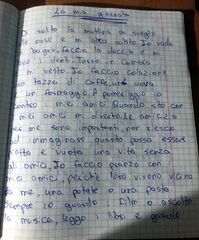 La mia giornata
Di solito la mattina mi sveglio
alle nove e mi alzo subito. Io vado
bagno, faccio la doccia e mi
i denti. Torno in camera
mi vesto. Io faccio colazione
tazza di caffè, uova
un formaggio. Il pomeriggio io
contro i miei amici. Quando sto con
miei amici mi diverto. Le amicizia
per me sono importanti, non riesco
ad immaginare quando possa essere
e vuota una vita senza
gli amici. Io faccio pranzo con
miei amici, perché loro vivono vicino
a me, una patate o una pasta.
sempre io guardo i film o ascolto
la musica, leggo i libri e guardo